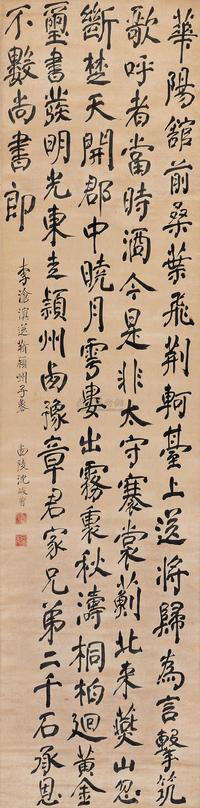 華陽館前桑葉飛荊軻臺上送將歸為言擊筑
歌呼者當時酒今是非太守褰裳薊北來燕山忽
斷楚天開郡中曉月雩婁出霧裏秋濤桐柏迴黃金
璽書發明光東走潁州西豫章君家兄弟二千石承恩
不數尚書郎
李滄溟送喻潁州子㮣
西陵沈